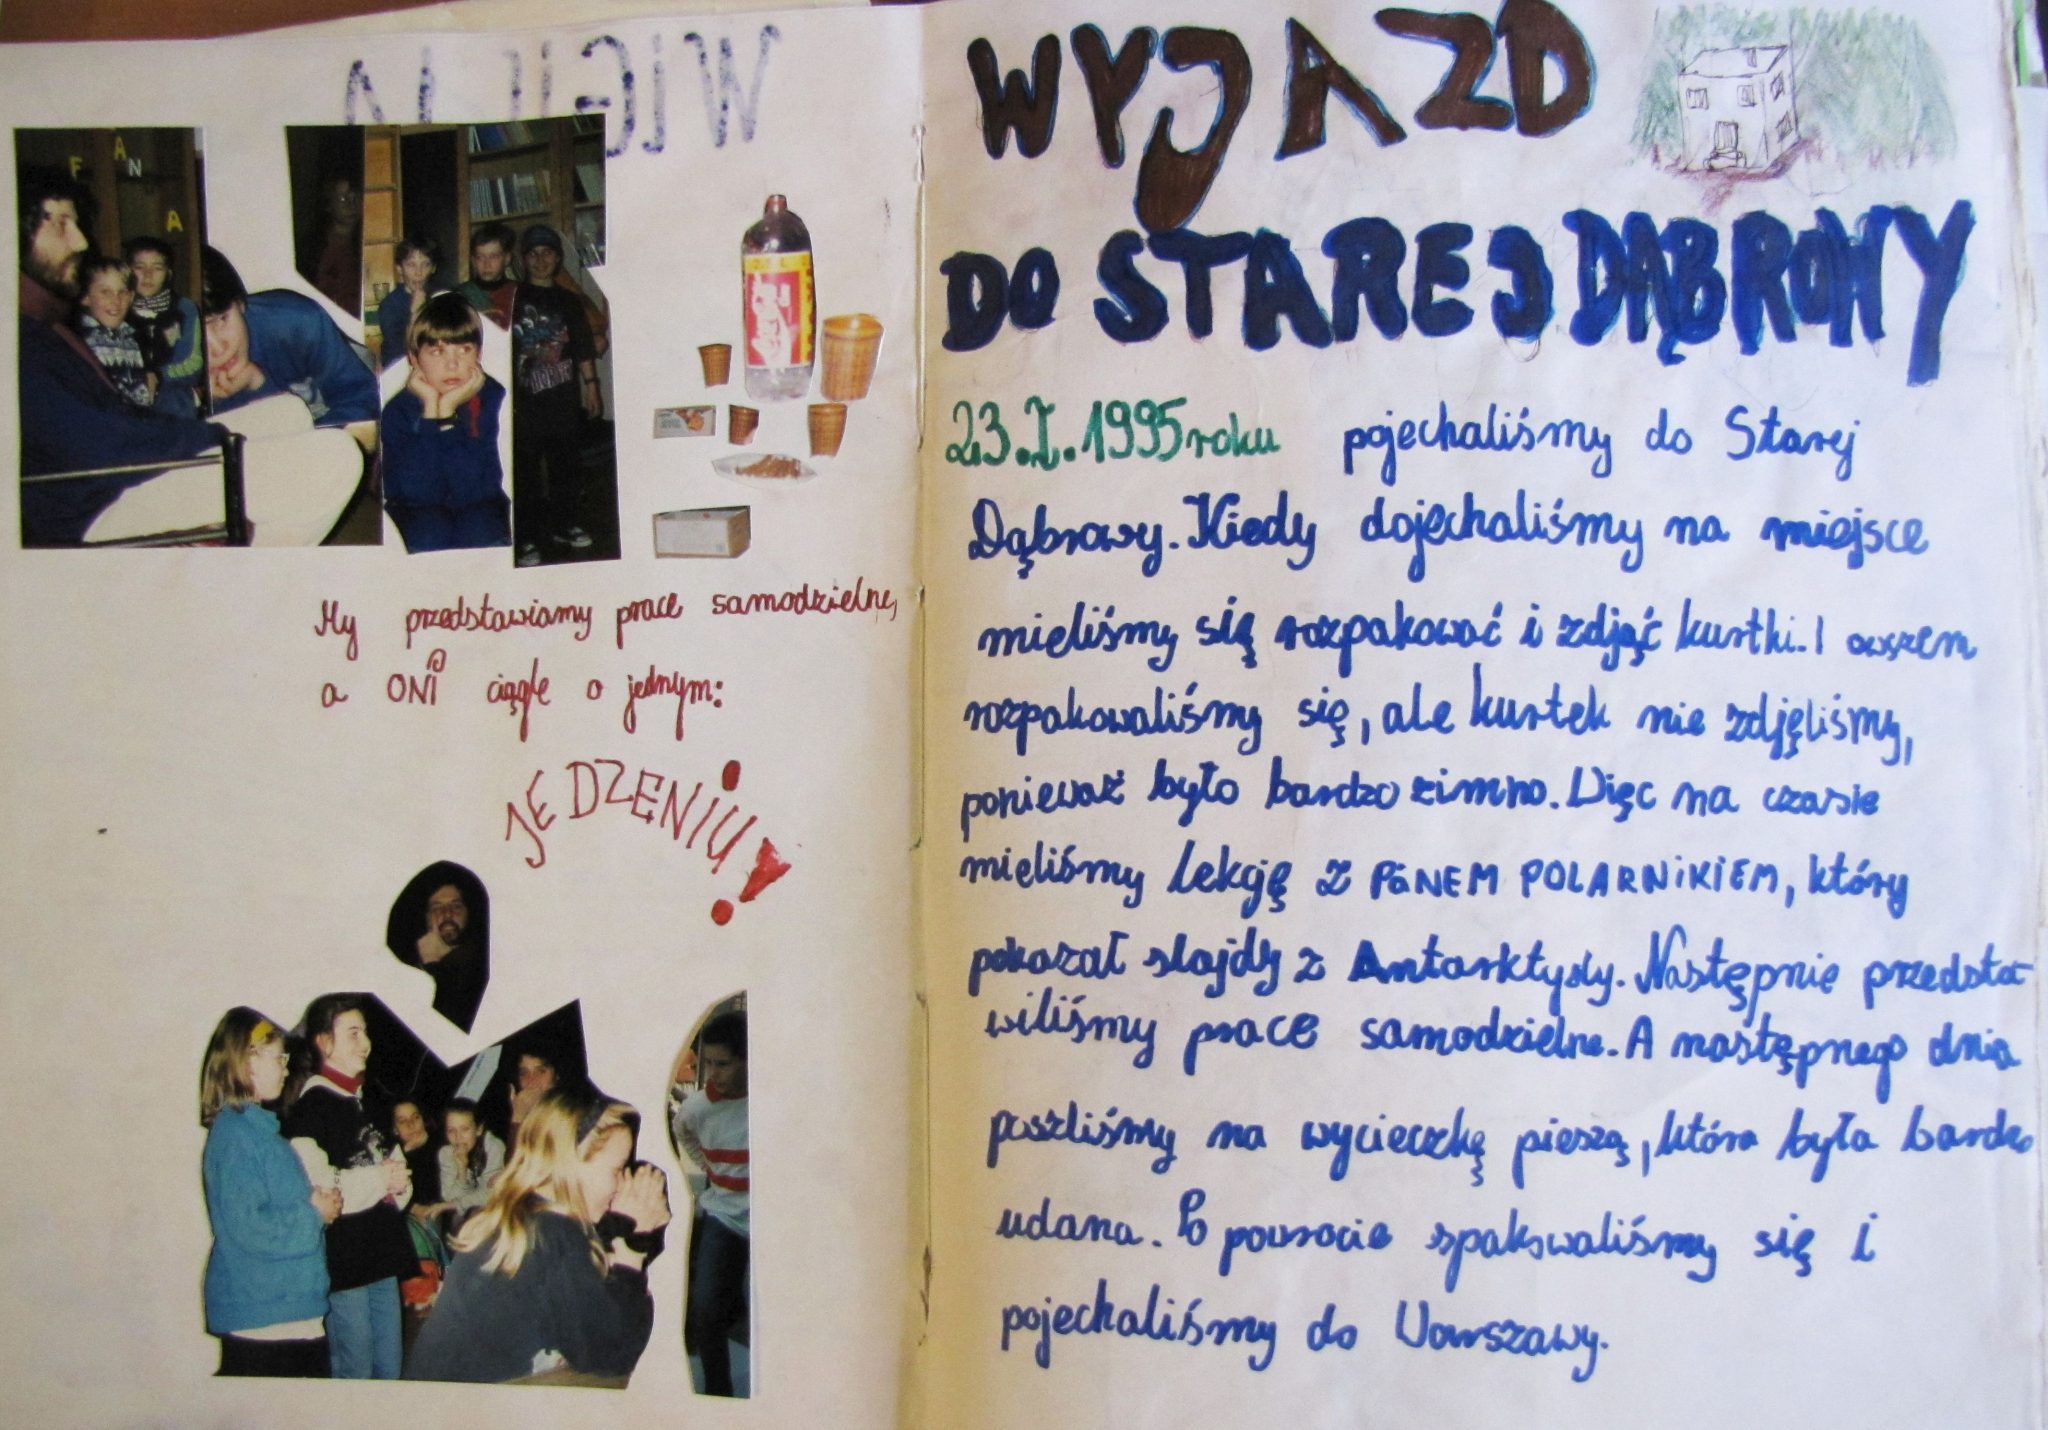 WIGILIA
F A N A
My przedstawiamy prace samodzielne,
a ONI ciągle o jednym:
JEDZENIU!
WYJAZD
DO STAREJ DĄBROWY
23.I.1995 roku pojechaliśmy do Starej
Dąbrowy. Kiedy dojechaliśmy na miejsce
mieliśmy się rozpakować i zdjąć kurtki. I owszem
rozpakowaliśmy się, ale kurtek nie zdjęliśmy,
ponieważ było bardzo zimno. Więc na czasie
mieliśmy lekcję z PANEM POLARNIKIEM, który
pokazał slajdy z Antarktydy. Następnie przedsta-
wiliśmy prace samodzielne. A następnego dnia
poszliśmy na wycieczkę pieszą, która była bardzo
udana. Po powrocie spakowaliśmy się i
pojechaliśmy do Warszawy.